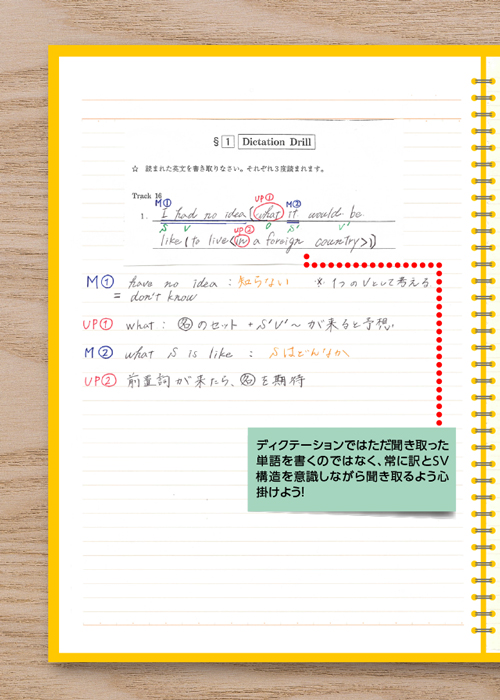 § 1 Dictation Drill
☆ 読まれた英文を書き取りなさい。それぞれ3度読まれます。
Track 16
M① UP① M②
1. I had no idea (what) it would be
S V O S' V'
UP②
like (to live <in a foreign country>)
M① have no idea : 知らない ※ 1つのVとして考える
= don't know
UP① what : 名のセット + S'V'~ が来ると予想.
M② what S is like : Sはどんなか
UP② 前置詞が来たら、名を期待
ディクテーションではただ聞き取った
単語を書くのではなく、常に訳とSV
構造を意識しながら聞き取るよう心
掛けよう!